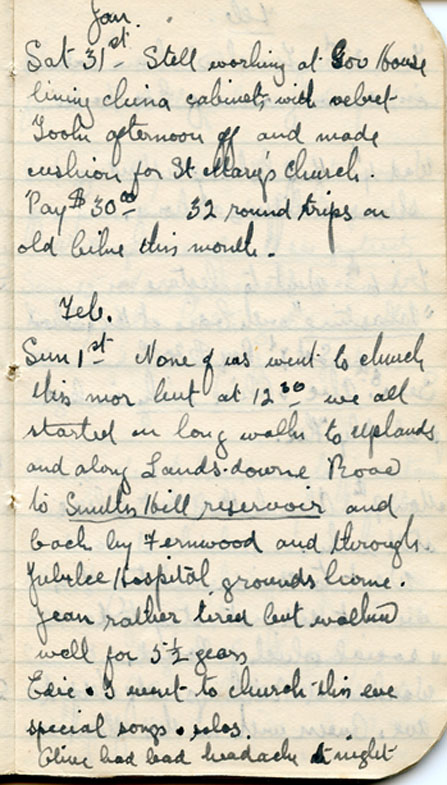 Jan.
Sat 31st Still working at Gov House
lining china cabinets with velvet
Took afternoon off and made
cushion for St Mary's Church.
Pay $30.00 32 round trips on
old bike this month.
Feb.
Sun 1st None of us went to church
this mor but at 12 30 we all
started on long walk to Uplands
and along Lands-downe Road
to Smiths Hill reservoir and
back by Fernwood and through
Jubilee Hospital grounds home.
Jean rather tired but walked
well for 5½ years
Edie & I went to church this eve
special songs & solos.
Olive had bad headache at night